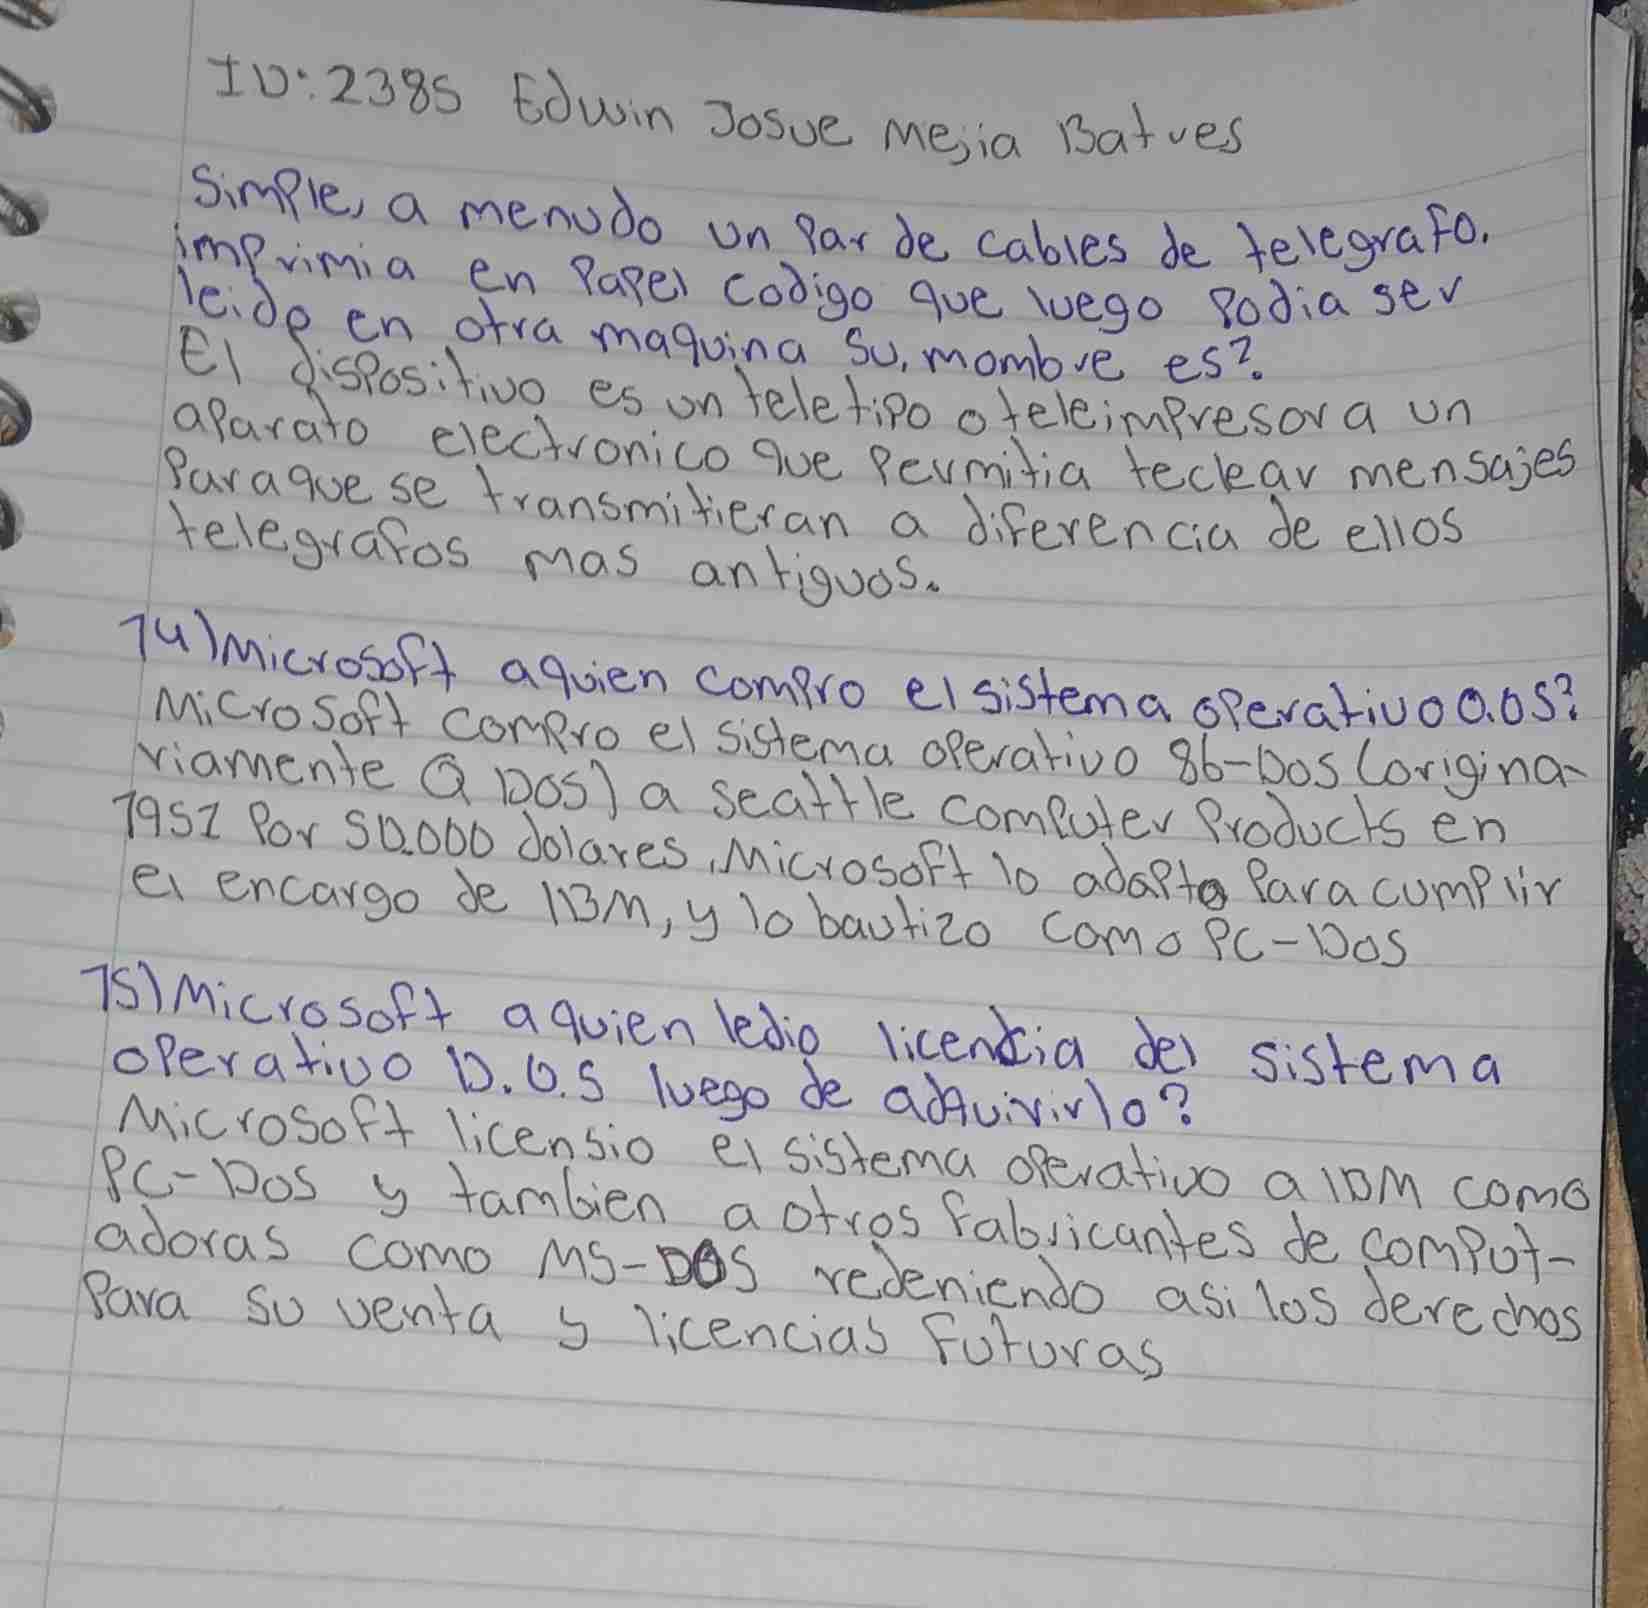 ID: 2385 Edwin Josue Mejia Batres
Simple, a menudo un Par de cables de telegrafo.
imprimia en Papel codigo que luego Podia ser
leido en otra maquina su, mombre es?
El disPositivo es un teletipo o teleimpresora un
aParato electronico que Permitia teclear mensajes
Para que se transmitieran a diferencia de ellos
telegrafos mas antiguos.
14) Microsoft aquien comPro el sistema oPerativo O.OS?
Microsoft comPro el sistema oPerativo 86-Dos (origina-
riamente Q DOS) a seattle comPuter Products en
1951 Por 50.000 dolares, Microsoft lo adaPto Para cumPlir
el encargo de IBM, y lo bautizo como PC-DOS
15) Microsoft a quien ledio licencia del sistema
oPerativo D.O.S luego de adquirirlo?
Microsoft licensio el sistema oPerativo a IBM como
PC-DOS y tambien a otros fabricantes de comPut-
adoras como MS-DOS redeniendo asi los derechos
Para su venta y licencias futuras